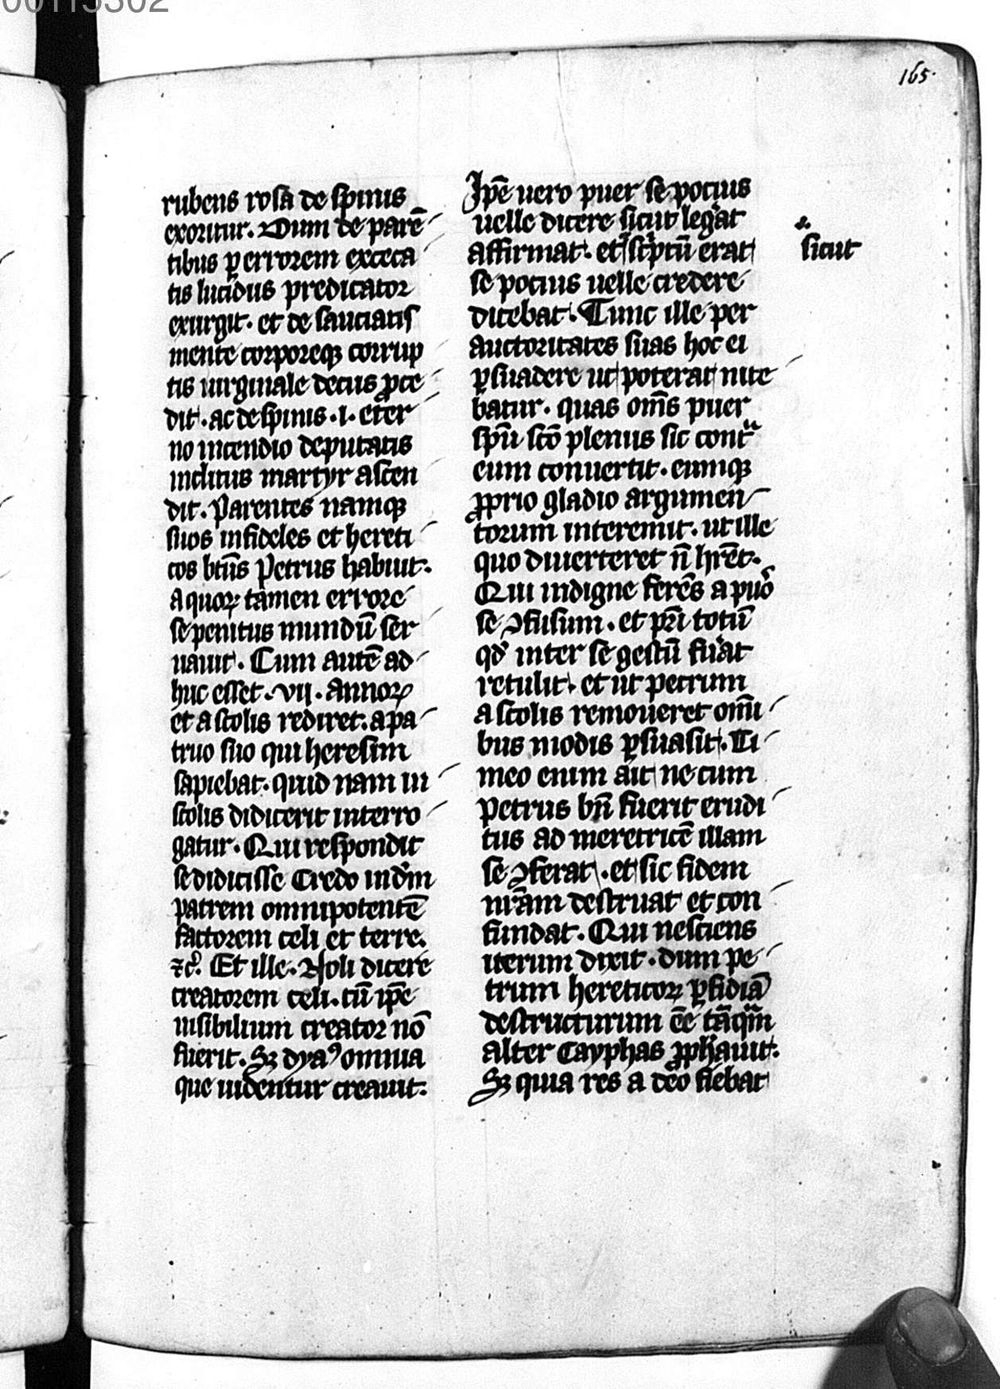 165.
rubens rosa de spinis
exoritur. Dum de parē
tibus ꝑ errorem exceca
tis lucidus predicator
exurgit. et de sauciatis
mente corporeqꝫ corrup
tis uirginale decus ꝓce
dit. ac de spinis .i. eter
no incendio deputatis
inclitus martyr ascen
dit. Parentes namqꝫ
suos infideles et hereti
cos btūs Petrus habuit.
a quoꝝ tamen errore
se penitus mundū ser
uauit. Cum autē ad
huc esset .vii. annoꝝ
et a scolis rediret. a pa
truo suo qui heresim
sapiebat. quid nam in
scolis didicerit interro
gatur. Qui respondit
se didicisse Credo in dm̄
patrem omnipotentē
factorem celi et terre.
⁊c̄. Et ille. Noli dicere
creatorem celi. cū ip̄e
uisibilium creator nō
fuerit. Sꝫ dyaꝰ omnia
que uidentur creauit.
Ip̄e uero puer se pocius
uelle dicere sicut legᵃt
affirmat. et sc̄ptū erat
sicut
se pocius uelle credere
dicebat. Tunc ille per
auctoritates suas hoc ei
ꝑsuadere ut poterat nite
batur. quas om̄s puer
sp̄u sc̄o plenus sic contᵃ
eum conuertit. eumqꝫ
ꝓprio gladio argumen
torum interemit. ut ille
quo diuerteret n̄ hr̄et.
Qui indigne ferēs a puᵒ
se ꝯfusum. et pr̄i totū
qd̄ inter se gestū fuᵃt
retulit. et ut petrum
a scolis remoueret om̄i
bus modis ꝑsuasit. Ti
meo enim ait ne cum
petrus bn̄ fuerit erudi
tus ad meretricē illam
se ꝯferat. et sic fidem
nr̄am destruat et con
fundat. Qui nesciens
uerum dixit. dum pe
trum hereticoꝝ ꝑfidiā
destructurum ēe tāqᵃm
alter Cayphas ꝓphauit.
Sꝫ quia res a deo fiebat